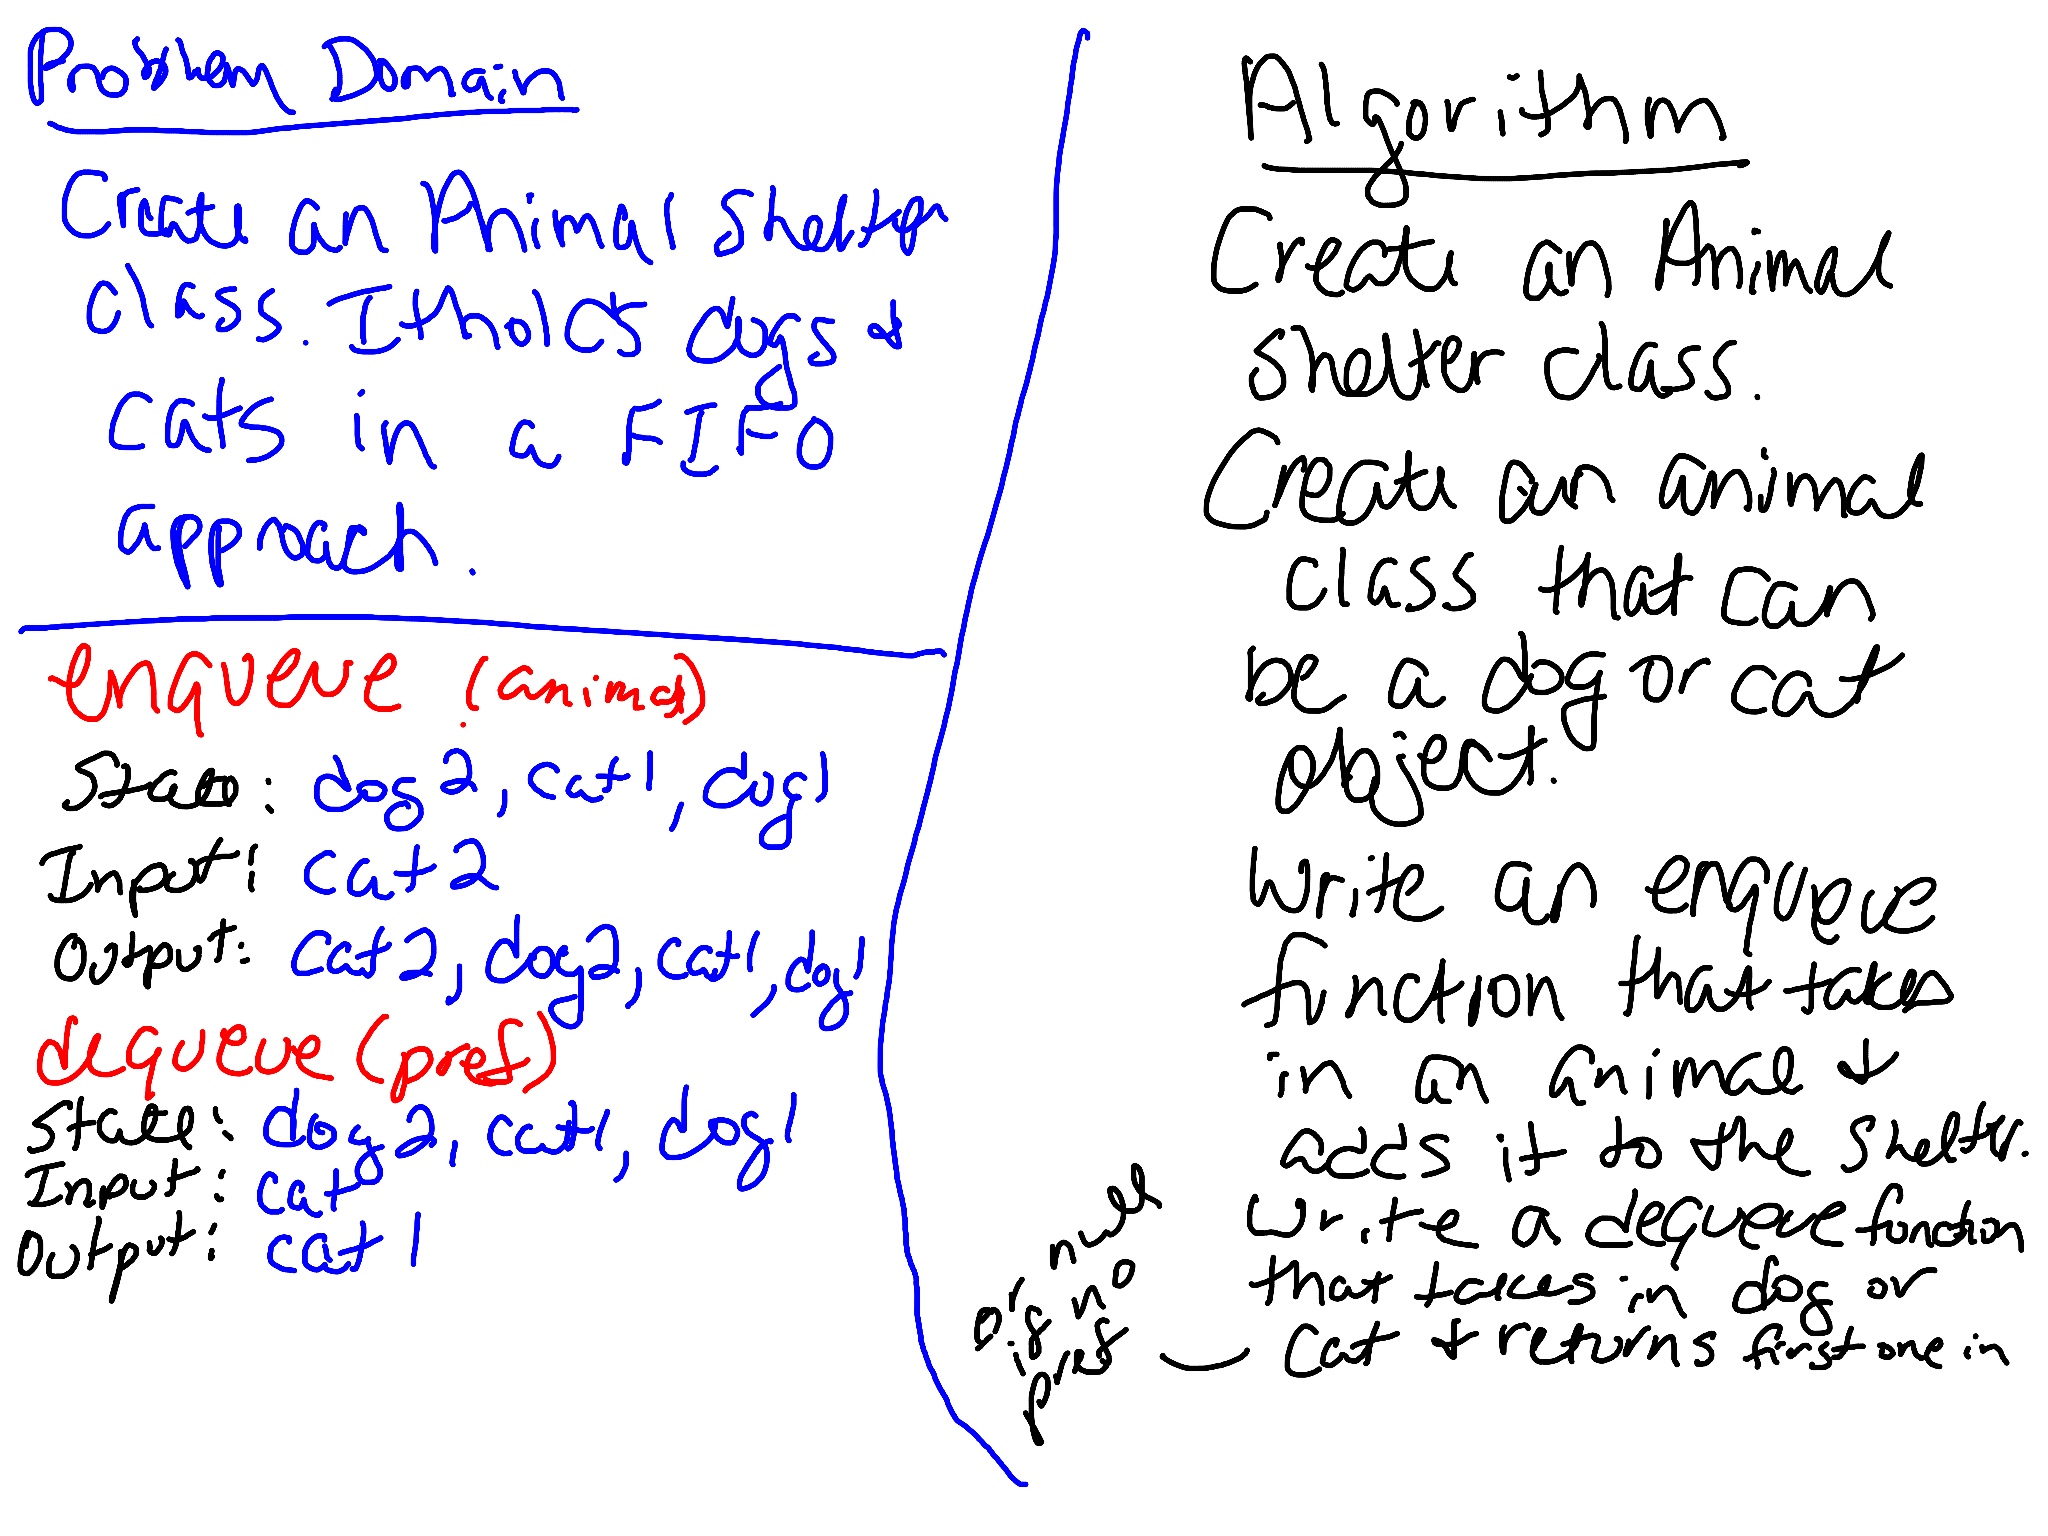 Problem Domain
Create an Animal Shelter
class. It holds dogs &
cats in a FIFO
approach.
enqueue (animal)
State: dog2, cat1, dog1
Input: cat2
Output: cat2, dog2, cat1, dog1
dequeue (pref)
State: dog2, cat1, dog1
Input: cat
Output: cat1
Algorithm
Create an Animal
Shelter class.
Create an animal
class that can
be a dog or cat
object.
Write an enqueue
function that takes
in an animal &
adds it to the shelter.
Write a dequeue function
that takes in dog or
cat & returns first one in
or null
if no
pref